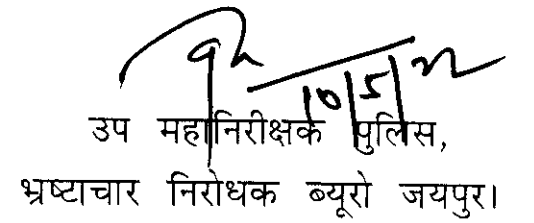 10/5/22
उप महानिरीक्षक पुलिस,
भ्रष्टाचार निरोधक ब्यूरो जयपुर।